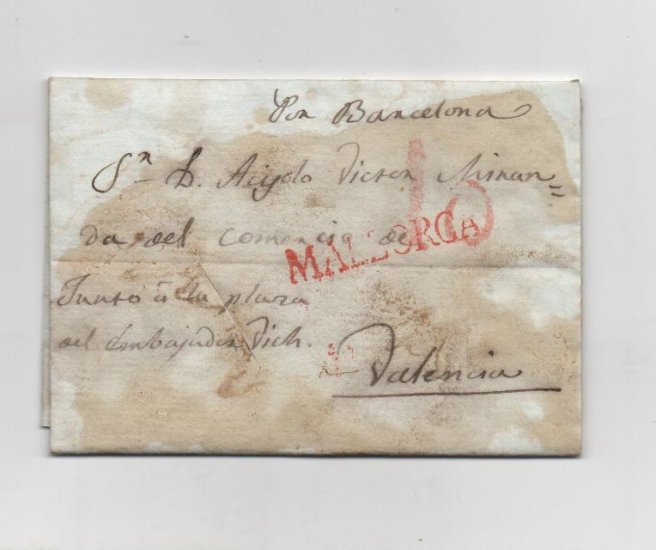 Por Barcelona
Sr. D. Acisclo Victor Miran=
da, del comercio de
MALLORCA
Junto á la plaza
del Embajador Vich.
Valencia